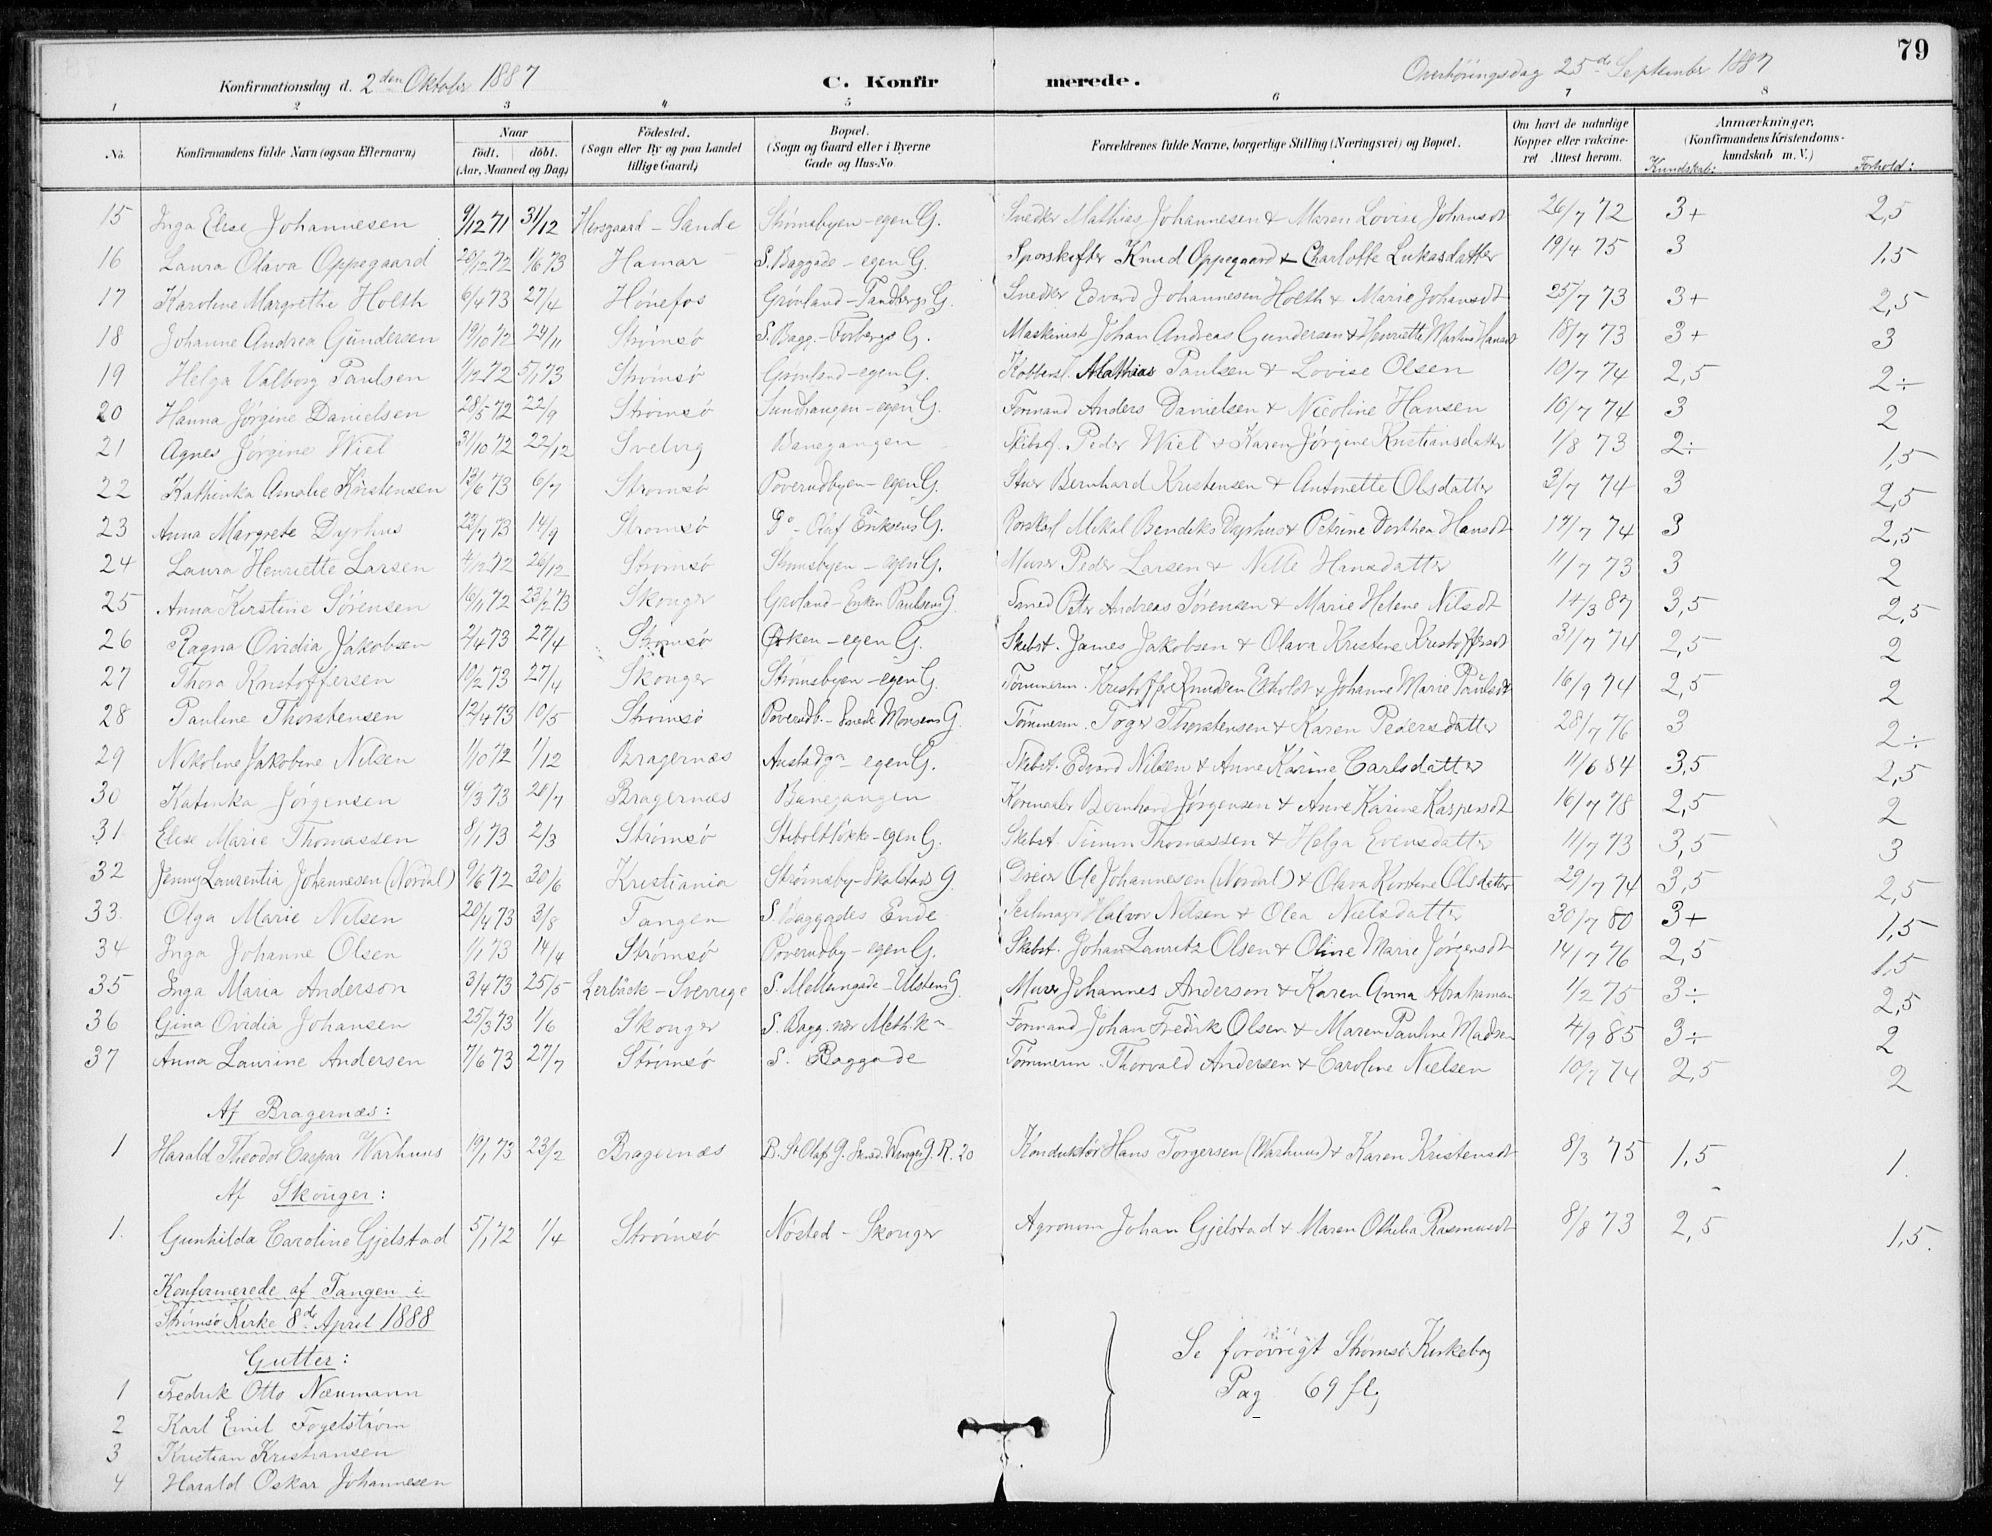 79
Konfirmationsdag d. 2den Oktober 1887 C. Konfirmerede. Overhöringsdag 25de September 1887
1 2 3 4 5 6 7 8
No. Konfirmandens fulde Navn (ogsaa Efternavn) Naar født. døbt. (Aar, Maaned og Dag) Födested. (Sogn eller By og paa Landet tillige Gaard) Bopæl. (Sogn og Gaard eller i Byerne Gade og Hus-No. Forældrenes fulde Navne, borgerlige Stilling (Næringsvei) og Bopæl. Om havt de naturlige Kopper eller vakcineret Attest herom. Anmærkninger, (Konfirmandens Kristendomskundskab m. V.) Kundskab: Forhold:
15 Inga Elise Johannesen 9/12 71 31/12 Horsgaard - Sande Strømsbyen - egen G. Snedker Mathias Johannesen & Maren Lovise Johansdt 26/7 72 3+ 2,5
16 Laura Olava Oppegaard 20/12 72 1/6 73 Hamar S. Baggade - egen G. Sporskifter Knud Oppegaard & Charlotte Lukasdatter 19/4 75 3 1,5
17 Karoline Margrethe Holth 6/4 73 27/4 Hönefos Grønland - Tandbergs G. Snedker Edvard Johannesen Holth & Marie Johansdt 25/7 73 3+ 2,5
18 Johanne Andrea Gundersen 19/10 72 24/11 Strømsö S. Bagg. - Forbergs G. Maskinist Johan Andreas Gundersen & Henriette Martine Hansdt 18/7 73 3+ 3
19 Helga Valborg Paulsen 1/12 72 5/1 73 Strømsö Grønland - egen G. Kobbersl. Mathias Paulsen & Lovise Olsen 10/7 74 2,5 2÷
20 Hanna Jørgine Danielsen 28/5 72 22/9 Strømsö Sundhaugen - egen G. Formand Anders Danielsen & Nicoline Hansen 10/7 74 3 2
21 Agnes Jørgine Wiel 31/10 72 22/12 Svelvig Banegangen Skibsf. Peder Wiel & Karen Jørgine Kristiansdatter 1/8 73 2÷ 1,5
22 Kathinka Amalie Kristensen 13/6 73 6/7 Strømsö Poverudbyen - egen G. Stuer Bernhard Kristensen & Antonette Olsdatter 3/7 74 3 2,5
23 Anna Margrete Dyrhus 23/7 73 14/9 Strømsö Do - Olaf Eriksens G. Mikal Bendiks Dyrhus & Petrine Dorthea Hansdt 17/7 74 3 2,5
24 Laura Henriette Larsen 4/12 72 26/12 Strømsö Strømsbyen - egen G. Murer Peder Larsen & Nille Hansdatter 11/7 73 3 2
25 Anna Kirstine Sörensen 16/1 72 23/2 73 Skouger Grønland - Enken Paulsens G. Smed Peter Andreas Sörensen & Marie Helene Nilsdt 14/3 87 3,5 2,5
26 Ragna Ovidia Jakobsen 2/4 73 27/4 Strømsö Ørken - egen G. Skibst. James Jakobsen & Olava Kristine Kristoffersdt 31/7 74 2,5 2
27 Thora Kristoffersen 10/2 73 27/4 Skouger Strømsbyen - egen G. Tømmerm. Kristoffer Knudsen & Johanne Marie Paulsdt 16/9 74 2,5 2
28 Pauline Thorstensen 12/4 73 10/5 Strømsö Poverudb. - Smed Monsens G. Tømmerm. Toger Thorstensen & Karen Pedersdatter 28/7 76 3 2÷
29 Nikoline Jakobine Nilsen 1/10 72 1/12 Bragernæs Austadgn - egen G. Skibst. Edvard Nilsen & Anne Karine Carlsdatter 11/6 84 3,5 2,5
30 Katinka Jörgensen 9/3 73 20/7 Bragernæs Banegangen Kornmaaler Bernhard Jörgensen & Anne Karine Kaspersdt 16/7 78 2,5 2
31 Elise Marie Thomassen 8/1 73 2/3 Strømsö Stiboltløkke - egen G. Skibst. Simon Thomassen & Helga Evensdatter 11/7 73 3,5 3
32 Jenny Laurentia Johannesen (Nordal) 9/6 72 30/6 Kristiania Strømsby - Skolstads G. Dreier Ole Johannesen (Nordal) & Olava Kirstine Olsdatter 29/7 74 3,5 2,5
33 Olga Marie Nilsen 20/4 73 3/8 Tangen S. Baggades Ende Seilmager Halvor Nilsen & Olea Nielsdatter 30/7 80 3+ 1,5
34 Inga Johanne Olsen 1/1 73 14/4 Strømsö Poverudby - egen G. Skibst. Johan Lauritz Olsen & Oline Marie Jørgensdt 14/7 76 2,5 1,5
35 Inga Maria Anderson 3/4 73 25/5 Lerbäck - Sverrige S. Mellemgade - Ulstens G Murer Johannes Anderson & Karen Anna Abrahamsen 1/2 75 3÷ 2,5
36 Gina Ovidia Johansen 25/3 73 1/6 Skouger S. Bagg. nær Meth.kn Formand Johan Fredrik Olsen & Maren Pauline Madsen 4/9 85 3÷ 2
37 Anna Laurine Andersen 7/6 73 27/7 Strømsö S. Baggade Tømmerm. Thorvald Andersen & Caroline Nielsen 10/7 74 2,5 2
Af Bragernæs:
1 Harald Theodor Caspar Warhuus 19/1 73 23/2 Bragernæs B. St Olafs G. R. 20 Konduktör Hans Torgersen (Warhuus) & Karen Kristensdt 8/3 75 1,5 1.
Af Skouger:
1. Gunhilda Caroline Gjelstad 5/1 72 1/4 Strømsö Nøsted - Skouger Agronom Johan Gjelstad & Maren Othilia Rasmusdt 8/8 73 2,5 1,5.
Konfirmerede af Tangen i
Strømsö Kirke 8de April 1888
Gutter:
Se forövrigt Strømsö Kirkebog
Pag 69 flg
1 Fredrik Otto Næumann
2 Karl Emil Fogelstrøm
3 Kristian Kristiansen
4 Harald Oskar Johannesen